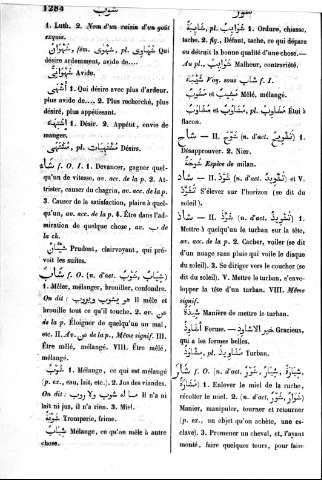 1284
1. Luth. 2. Nom d'un raisin d'un goût
exquis.
شَهْوَانُ, fém. شَهْوَى, pl. شَهَاوَى Qui
désire ardemment, avide de....
شَهْوَانِىٌّ Avide.
أَشْهَى 1. Qui désire avec plus d'ardeur,
plus avide de.... 2. Plus recherché, plus
désiré, plus appétissant.
إِشْتِهَاءٌ 1. Désir. 2. Appétit, envie de
manger.
مُشْتَهًى, pl. مُشْتَهَيَاتٌ Désire.
شَاءَ f. O. I. 1. Devancer, gagner quel-
qu'un de vitesse, av. acc. de la p. 2. At-
trister, causer du chagrin, av. acc. de la p.
3. Causer de la satisfaction, plaire à quel-
qu'un, av. acc. de la p. 4. Être dans l'ad-
miration de quelque chose, av. ب de
la ch.
Prudent, clairvoyant, qui pré-
voit les suites.
شَابَ f. O. (n. d'act. شَوْبٌ, شِيَابٌ)
1. Mêler, mélanger, brouiller, confondre.
On dit : هو يشوب ويروب Il mêle et
brouille tout ce qu'il touche. 2. av. عن
de la p. Éloigner de quelqu'un un mal,
etc. II. Av. عن de la p., Même signif. III.
Être mêlé, mélangé. VIII. Être mêlé,
mélangé.
شَوْبٌ 1. Mélange, ce qui est mélangé
(p. ex., eau, lait, etc.). 2. Jus des viandes.
On dit : ما له شوب ولا روب Il n'a ni
lait ni jus, il n'a rien. 3. Miel.
شَوْبَةٌ Tromperie, frime.
شِيَابٌ Mélange, ce qu'on mêle à autre
chose.
شَائِبَةٌ, pl. شَوَائِبُ 1. Ordure, chiasse,
tache. 2. fig. Défaut, tache, ce qui dépare
ou détruit la bonne qualité d'une chose.—
Au pl., شَوَائِبُ Malheur, contrariété.
Voy. sous شاب f. I.
مَشُوبٌ et مَشِيبٌ Mêlé, mélangé.
pl. Étui à
flacon.
— II. (n. d'act.) 1.
Désapprouver. 2. Nier.
شُوحَةٌ Espèce de milan.
شَاذَ — II. شَوَّذَ (n. d'act. تَشْوِيذٌ) et V.
تَشَوَّذَ S'élever sur l'horizon (se dit du
soleil).
شَاذَ — II. شَوَّذَ (n. d'act. تَشْوِيذٌ) 1.
Mettre à quelqu'un le turban sur la tête,
av. acc. de la p. 2. Cacher, voiler (se dit
d'un nuage sans pluie qui voile le disque
du soleil). 3. Se diriger vers le coucher (se
dit du soleil). V. Mettre le turban, s'enve-
lopper la tête d'un turban. VIII. Même
signif.
شِيذَةٌ Manière de mettre le turban.
أَشَاوِذُ Forme. — خير الاشاوذ Gracieux,
qui a les formes belles.
مِشْوَذٌ, pl. مَشَاوِذُ Turban.
شَارَ f. O. (n. d'act. شَوْرٌ, شِيَارٌ, شِيَارَةٌ,
) 1. Enlever le miel de la ruche,
récolter le miel. 2. (n. d'act. شَوْرٌ, شِوَارٌ)
Manier, manipuler, tourner et retourner
(p. ex., un objet qu'on achète, une es-
clave). 3. Promener un cheval, et, l'ayant
monté, faire quelques tours, pour faire